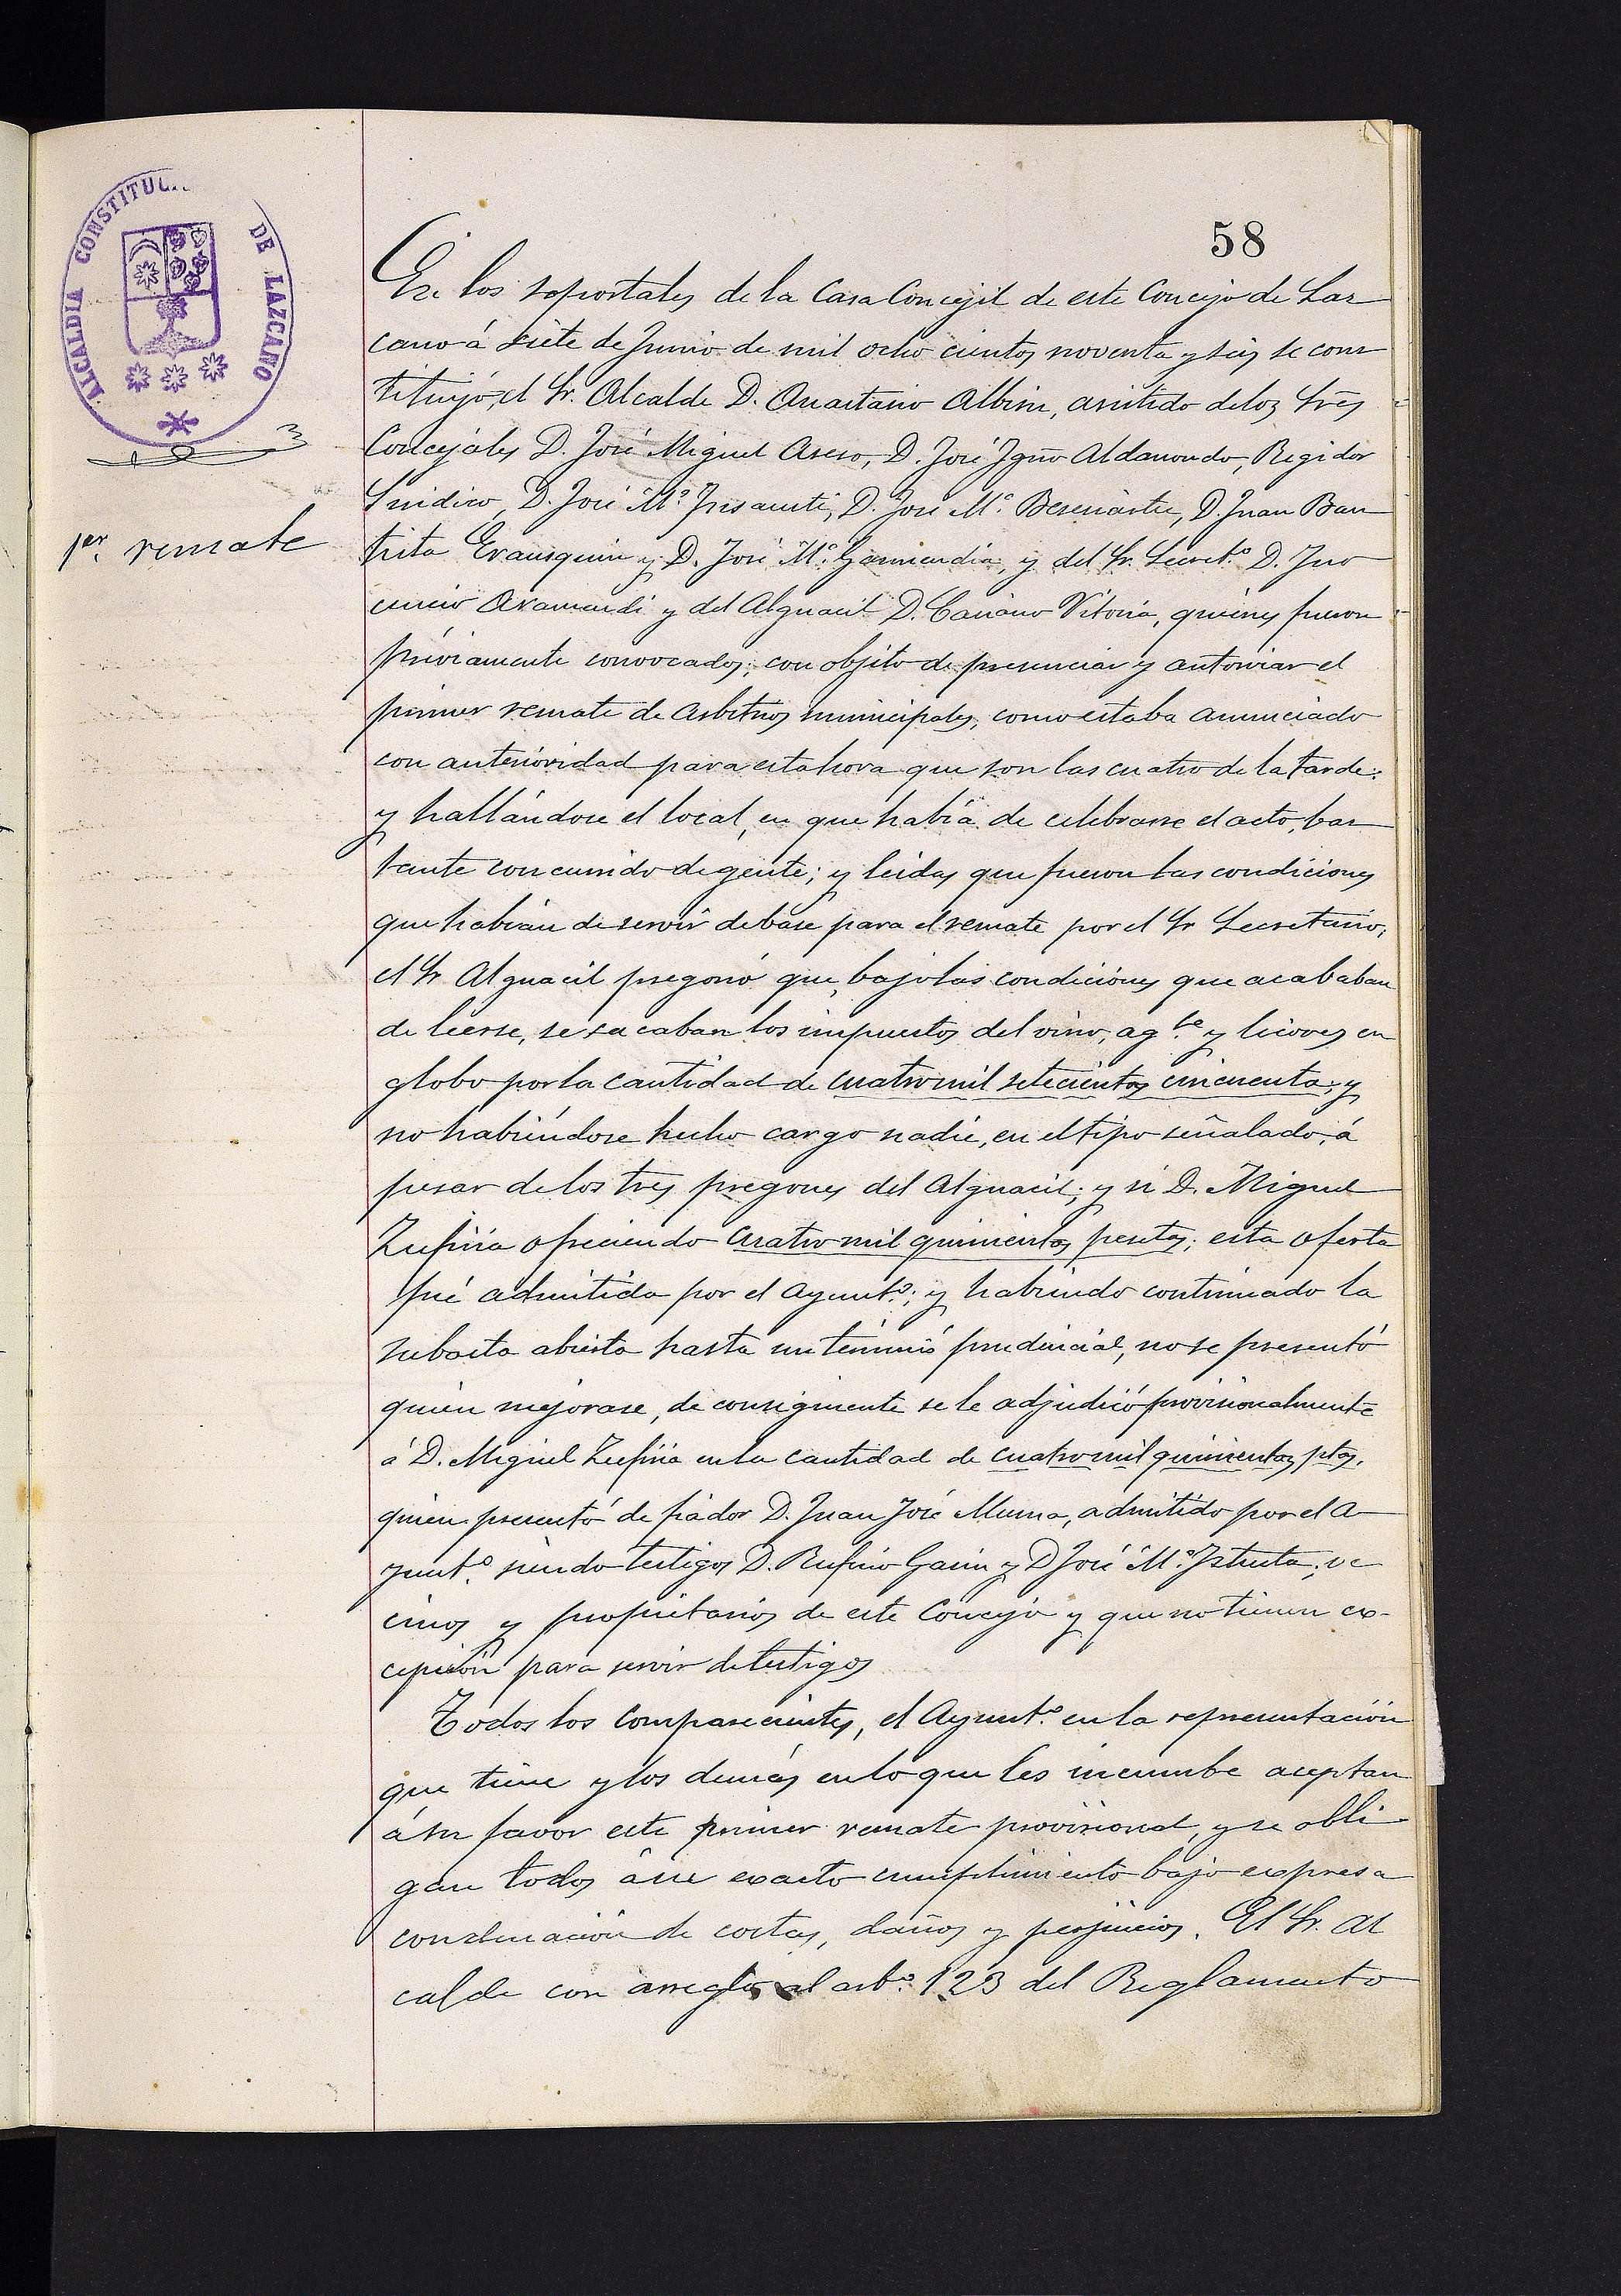 ALCALDIA CONSTITUC... DE LAZCANO
58
1er. remate
En los soportales de la Casa Concejil de este Concejo de Laz
cano á siete de Junio de mil ocho cientos noventa y seis se cons
tituyó, el Sr. Alcalde D. Anastasio Albisu, asistido de los Sres
Concejales D. José Miguel Aseso, D. José Ygno Aldanondo, Regidor
Sindico, D. José Mª. D. José Mª. D. Juan Bau
tista Erausquin y D. José Mª. Garmendia, y del Sr. Secret.º D. Ino
cencio Aramendi y del Alguacil D. Casiano Vitoria, quienes fueron
préviamente convocados; con objeto de presenciar y autorizar el
primer remate de Arbitrios municipales, como estaba anunciado
con anterioridad para esta hora que son las cuatro de la tarde:
y hallándose el local, en que habia de celebrarse el acto, bas
tante concurrido de gente; y leidas que fueron las condiciones
que habian de servir de base para el remate por el Sr Secretario,
el Sr Alguacil pregonó que, bajo las condiciones que acababan
de leerse, se sacaban los impuestos del vino, ag.te y licores en
globo por la cantidad de cuatro mil setecientos cincuenta; y
no habiéndose hecho cargo nadie, en el tipo señalado, á
pesar de los tres pregones del Alguacil; y si D. Miguel
Zufiria ofreciendo cuatro mil quinientas pesetas; esta oferta
fué admitida por el Ayunt.º; y habiendo continuado la
subasta abierta hasta un término prudencial, no se presentó
quien mejorase, de consiguiente se le adjudicó provisionalmente
á D. Miguel Zufiria en la cantidad de cuatro mil quinientas ptas.
quien presentó de fiador D. Juan José Munoa, admitido por el A
yunt.º siendo testigos D. Rufino Garin y D José Mª. ve
cinos y propietarios de este Concejo y que no tienen ex-
cepción para servir de testigos
Todos los comparecientes, el Ayunt.º en la representación
que tiene y los demás en lo que les incumbe aceptan
á su favor este primer remate provisional, y se obli
gan todos á su exacto cumplimiento bajo expresa
condenación de costas, daños y perjuicios. El Sr. Al
calde con arreglo al artº. 123 del Reglamento